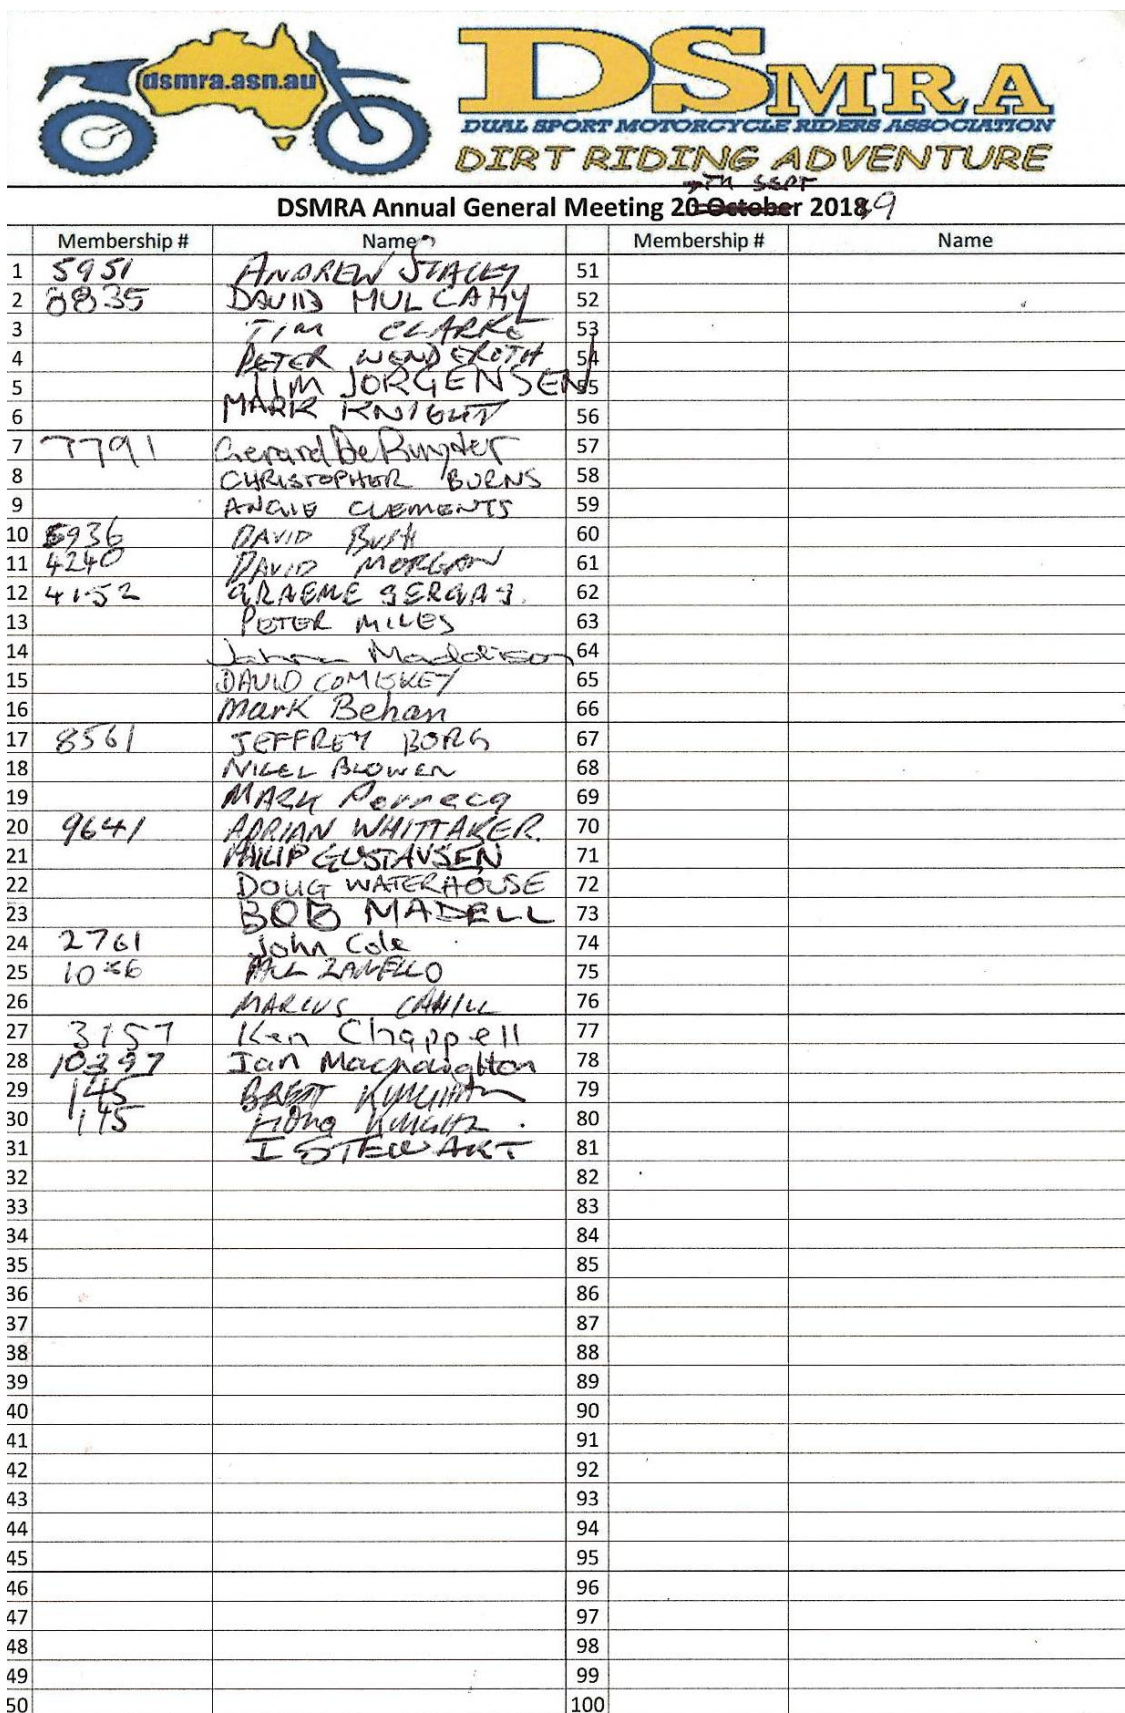 dsmra.asn.au
DSMRA
DUAL SPORT MOTORCYCLE RIDERS ASSOCIATION
DIRT RIDING ADVENTURE
TH SEPT
DSMRA Annual General Meeting 20 October 2018 9
Membership # Name Membership # Name
1 5951 ANDREW STACEY 51
2 8835 DAVID MULCAHY 52
3 TIM CLARKE 53
4 PETER WENDEROTH 54
5 TIM JORGENSEN 55
6 MARK KNIGHT 56
7 7791 Gerard De Ruyter 57
8 CHRISTOPHER BURNS 58
9 ANGIE CLEMENTS 59
10 5936 DAVID BUSH 60
11 4240 DAVID MORGAN 61
12 4152 GRAEME 62
13 PETER MILES 63
14 Maddison 64
15 DAVID COMISKEY 65
16 Mark Behan 66
17 8561 JEFFREY BORG 67
18 NIGEL BLOWEN 68
19 MARK 69
20 9641 ADRIAN WHITTAKER 70
21 PHILIP GUSTAVSEN 71
22 DOUG WATERHOUSE 72
23 BOB MADELL 73
24 2761 John Cole 74
25 PAUL ZANELLO 75
26 MARCUS CAHILL 76
27 3157 Ken Chappell 77
28 10397 Ian Macnaughton 78
29 145 BRETT 79
30 145 80
31 I STEWART 81
32 82
33 83
34 84
35 85
36 86
37 87
38 88
39 89
40 90
41 91
42 92
43 93
44 94
45 95
46 96
47 97
48 98
49 99
50 100